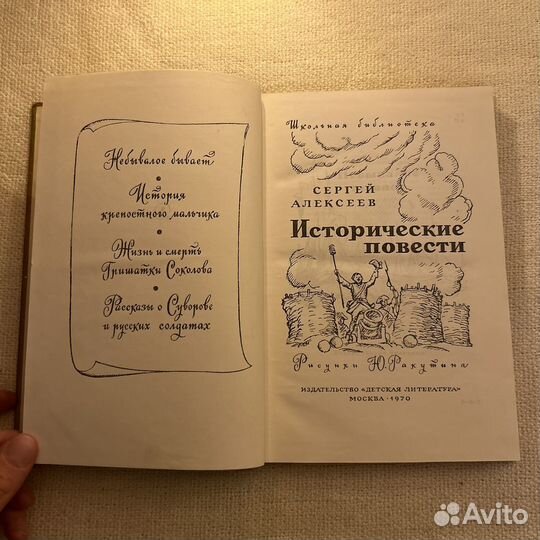 Небывалое бывает
История
крепостного мальчика
Жизнь и смерть
Гришатки Соколова
Рассказы о Суворове
и русских солдатах
Школьная библиотека
СЕРГЕЙ
АЛЕКСЕЕВ
Исторические
повести
Рисунки Ю. Ракутина
ИЗДАТЕЛЬСТВО «ДЕТСКАЯ ЛИТЕРАТУРА»
МОСКВА · 1970
Avito